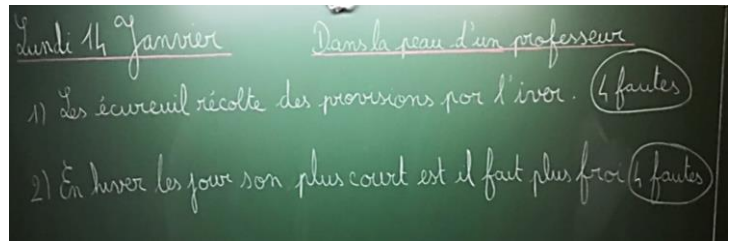 Lundi 14 Janvier Dans la peau d'un professeur
1) Les écureuil récolte des provisions por l'iver. 4 fautes
2) En hiver les jour son plus court est il fait plus froi 4 fautes